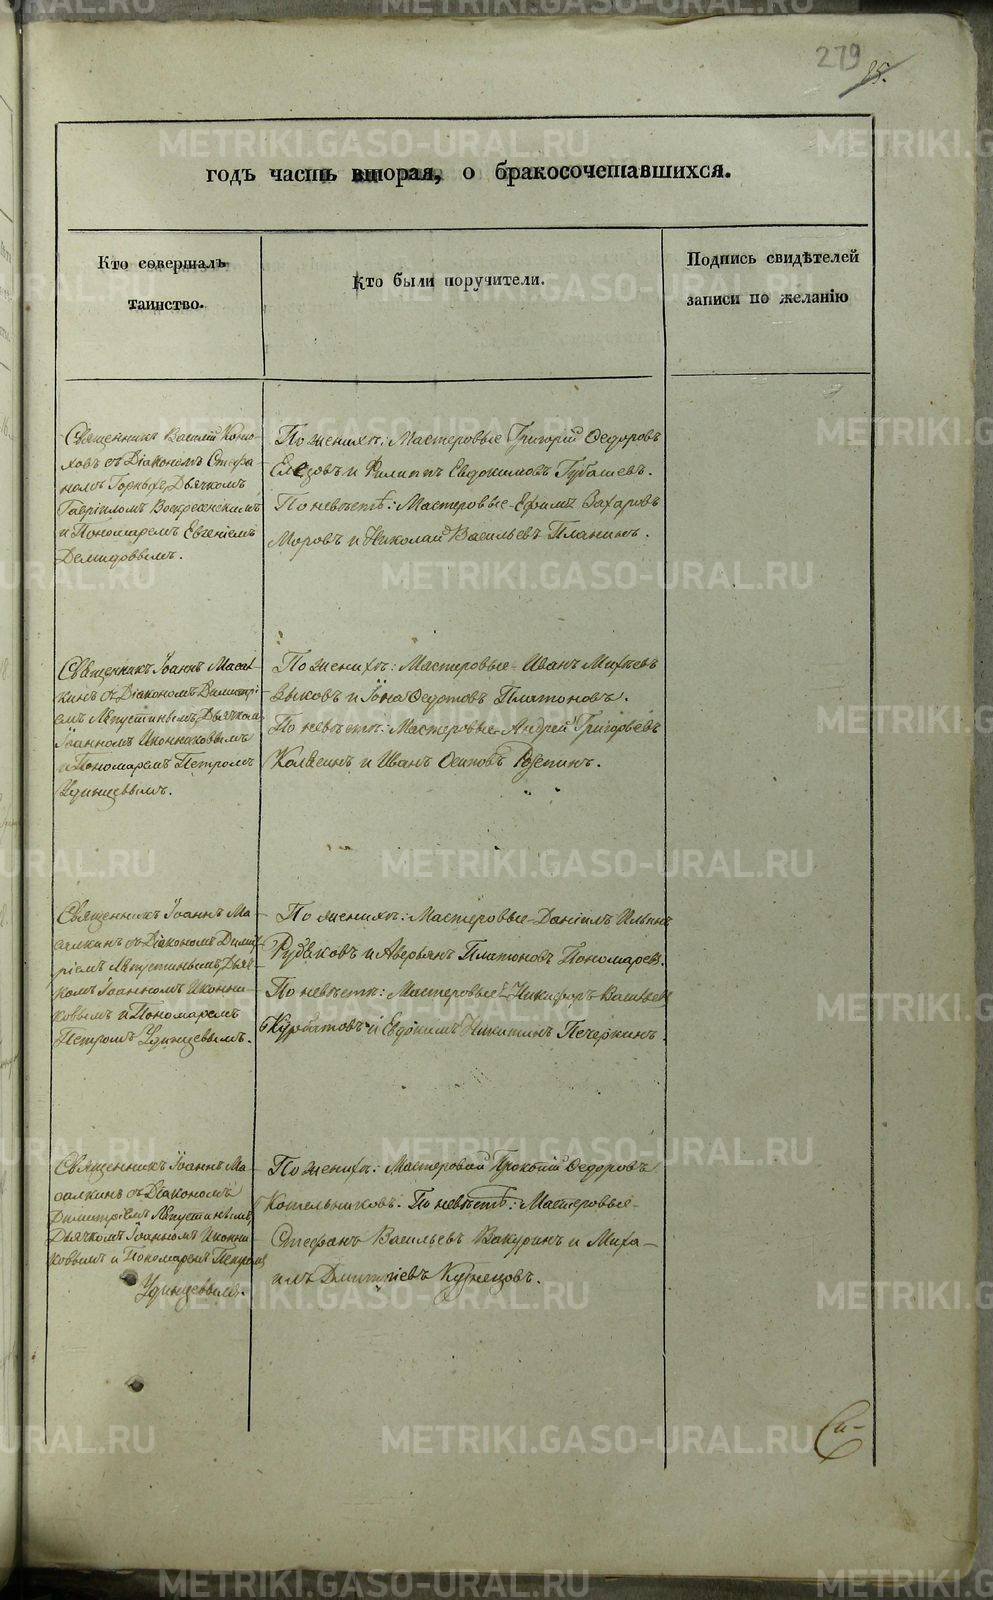 279
годъ часть вторая, о бракосочетавшихся.
Кто совершалъ
таинство.
Кто были поручители.
Подпись свидѣтелей
записи по желанію
Священникъ Василій Коню-
ховъ съ Діакономъ Стефа-
номъ Горныхъ, Дьячкомъ
Гавріиломъ Воскресенскимъ
и Пономаремъ Евгеніемъ
Демидовымъ.
По женихѣ: Мастеровые Григорій Ѳедоровъ
и Филиппъ Евдокимовъ
По невѣстѣ: Мастеровые Ефимъ Захаровъ
Моровъ и Николай Васильевъ Планинъ.
Священникъ Іоаннъ Масал-
кинъ съ Діакономъ Димитрі-
емъ Дьячкомъ
Іоанномъ Иконниковымъ
и Пономаремъ Петромъ
Удинцевымъ.
По женихѣ: Мастеровые Иванъ Михѣевъ
Зыковъ и Іона Ѳедотовъ Платоновъ.
По невѣстѣ: Мастеровые Андрей Григорьевъ
и Иванъ Осиповъ
Священникъ Іоаннъ Ма-
салкинъ съ Діакономъ Димит-
ріемъ Дьяч-
комъ Іоанномъ Иконни-
ковымъ и Пономаремъ
Петромъ Удинцевымъ.
По женихѣ: Мастеровые Даніилъ Ильинъ
Рудаковъ и Аверьянъ Платоновъ Пономаревъ.
По невѣстѣ: Мастеровые Никифоръ Васильевъ
Курбатовъ и Евдокимъ Никитинъ Печеркинъ.
Священникъ Іоаннъ Ма-
салкинъ съ Діакономъ
Димитріемъ
Дьячкомъ Іоанномъ Иконни-
ковымъ и Пономаремъ Петромъ
Удинцевымъ.
По женихѣ: Мастеровой Прокопій Ѳедоровъ
Котельниковъ. По невѣстѣ: Мастеровые
Стефанъ Васильевъ Вакуринъ и Миха-
илъ Дмитріевъ Кузнецовъ.
METRIKI.GASO-URAL.RU